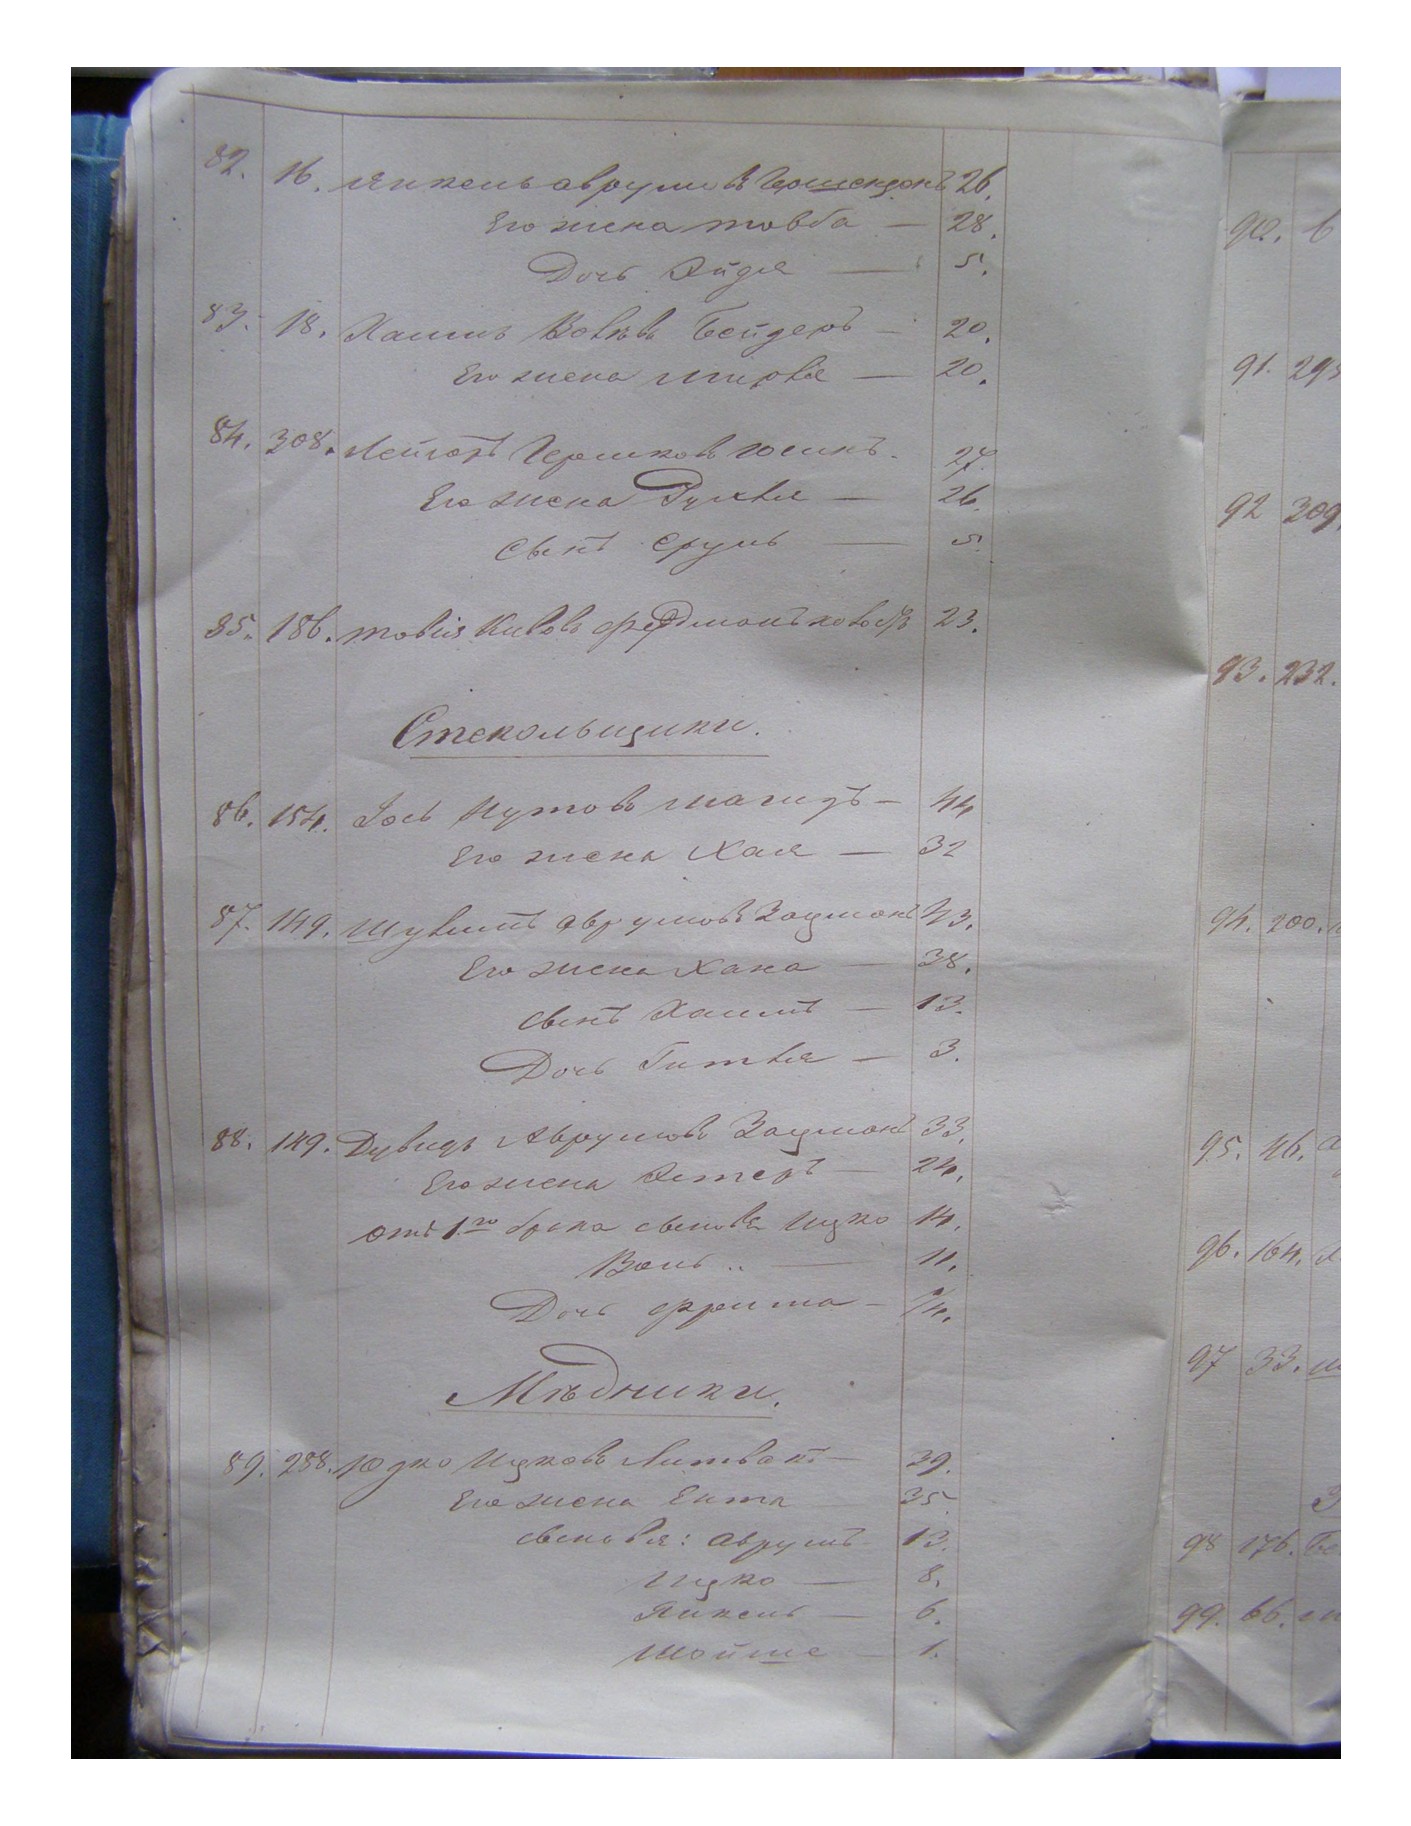 82. 16. Янкель Аврумовъ Гершензонъ 26.
Его жена Товба — 28.
Дочь Эйдля — 5.
83. 18. Хаимъ Вольвъ Бейдеръ — 20.
Его жена — 20.
84. 308. Лейзоръ Гершковъ 27.
Его жена Рухля — 26.
Сынъ Сруль — 5.
85. 186. Товія Кивовъ 23.
Стекольщики.
86. 154. Іось Нутовъ Магидъ — 44
Его жена Хая — 32
87. 149. Шулимъ Аврумовъ Зацманъ 43.
Его жена Хана — 38.
Сынъ Хаимъ — 13.
Дочь Гитля — 3.
88. 149. Дувидъ Аврумовъ Зацманъ 33.
Его жена Эстеръ — 24.
отъ 1го брака сыновья Ицко 14.
Вольь — 11.
Дочь Фрейма —
Мѣдники.
89. 258. Юдко Ицковъ Литвакъ — 39.
Его жена Ента 35.
Сыновья: Аврумъ 13.
Ицко — 8.
Янкель — 6.
Мойше — 1.
90. 6
91. 295
92 309.
93. 232.
94. 200.
95. 46.
96. 164.
97 33.
98 176. Бе
99. 66.